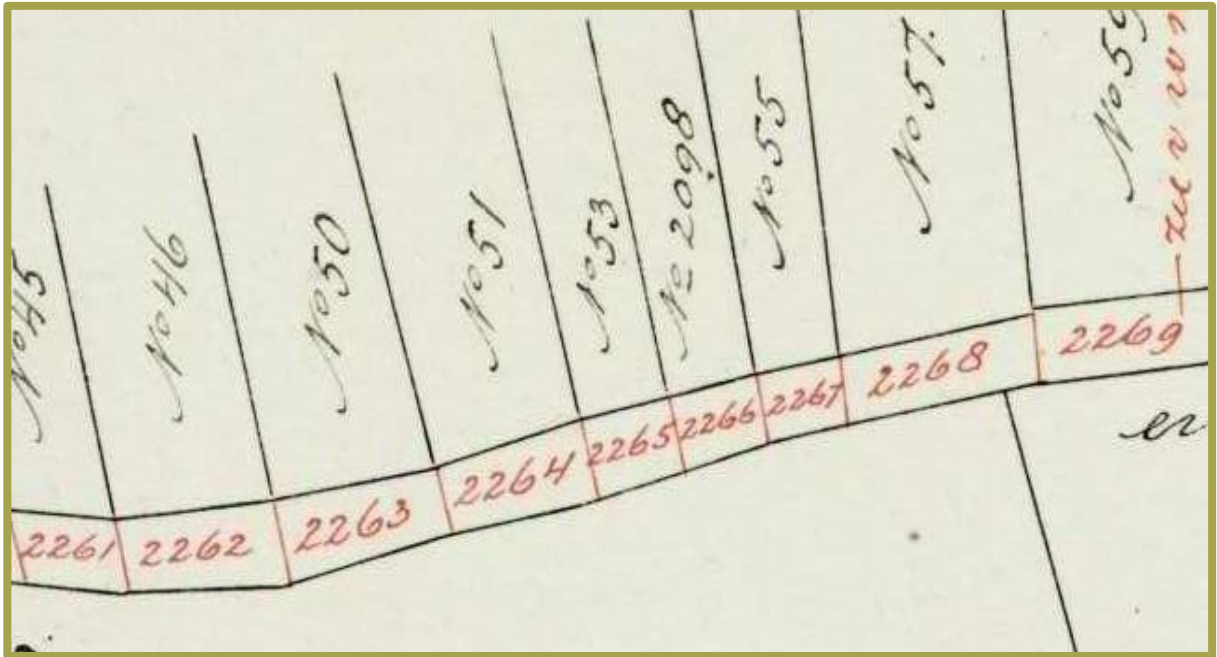 No 45
No 46
No 50
No 51
No 53
No 2098
No 55
No 57.
No 59
2261
2262
2263
2264
2265
2266
2267
2268
2269
er